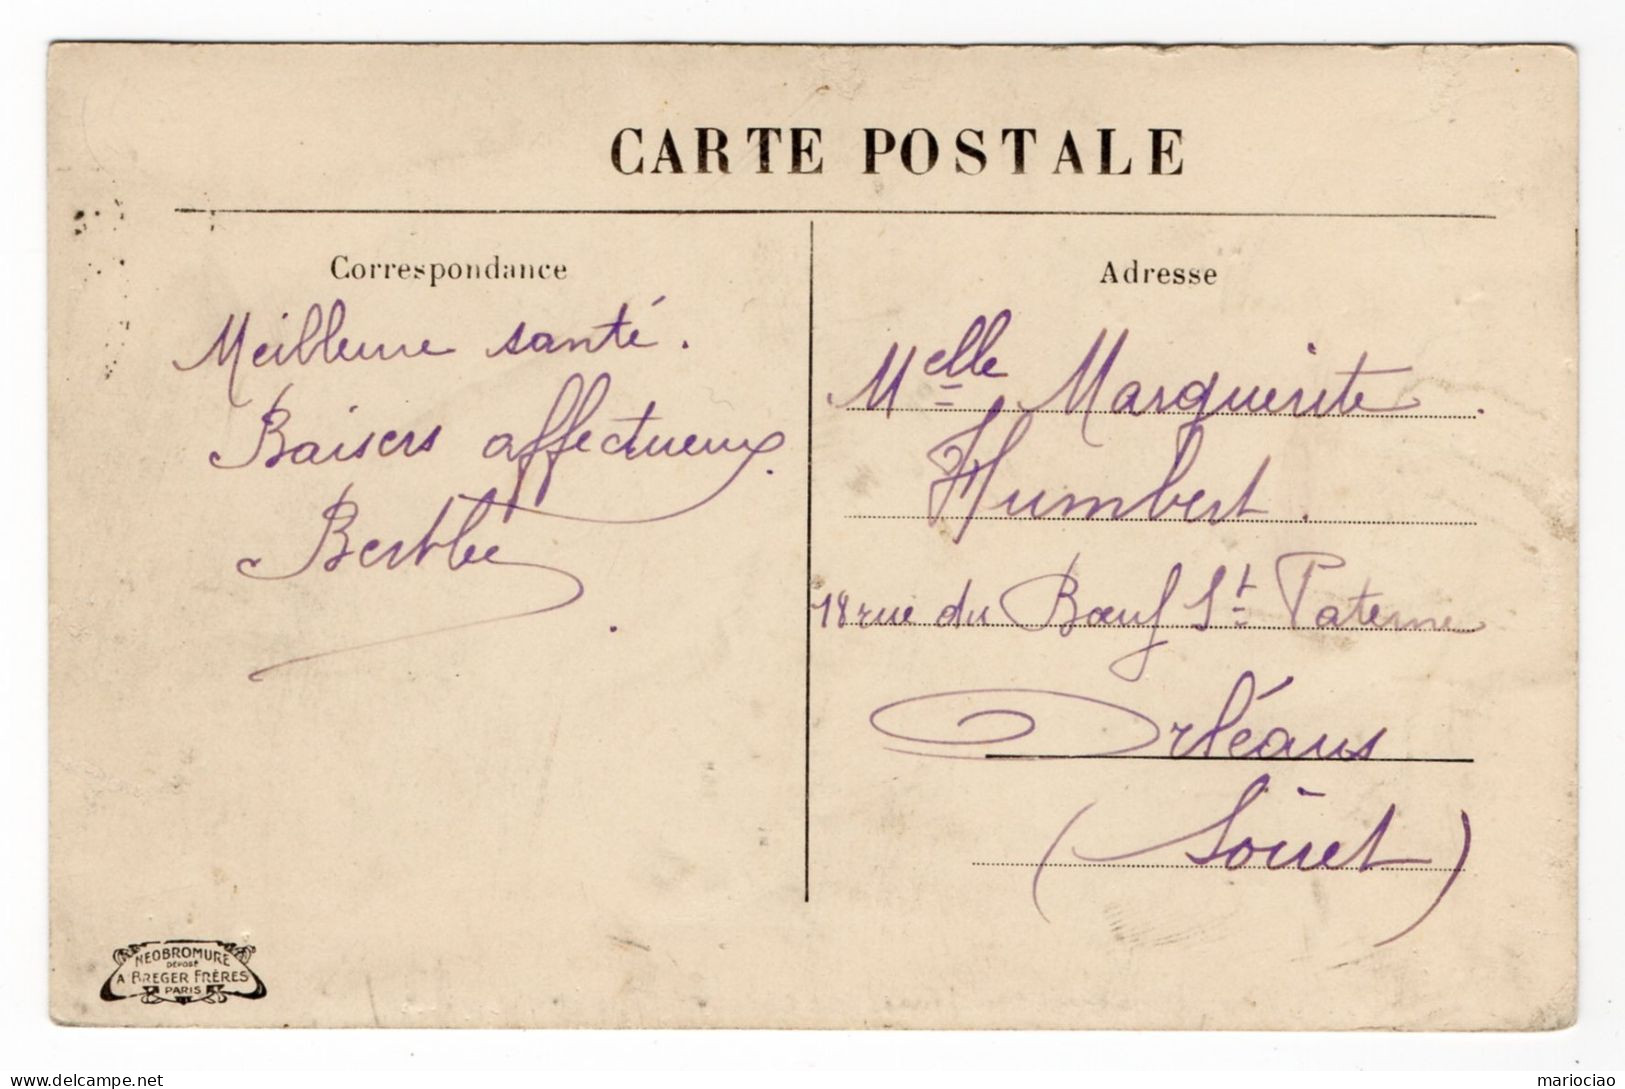 CARTE POSTALE
Correspondance
Meilleure santé.
Baisers affectueux.
Berthe
Adresse
Melle Marguerite
Humbert.
18 rue du Bœuf St Paterne
Orléans
(Loiret)
NEOBROMURE
DÉPOSÉ
A. BREGER FRÈRES
PARIS
delcampe.net
mariociao